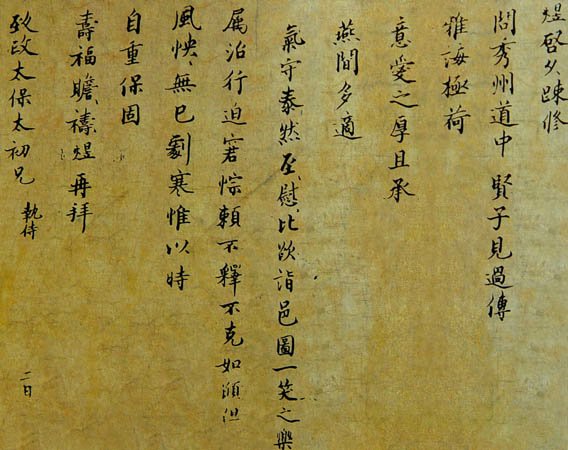 煜啓久踈修
問秀州道中賢子見過傳
雅誨極荷
意愛之厚且承
燕閒多適
氣守泰然至慰比欲詣邑圖一笑之樂
属治行迫窘悰賴不釋不克如願但
風怏無已劇寒惟以時
自重保固
壽福瞻禱煜再拜
致政太保太初兄
執侍
二日